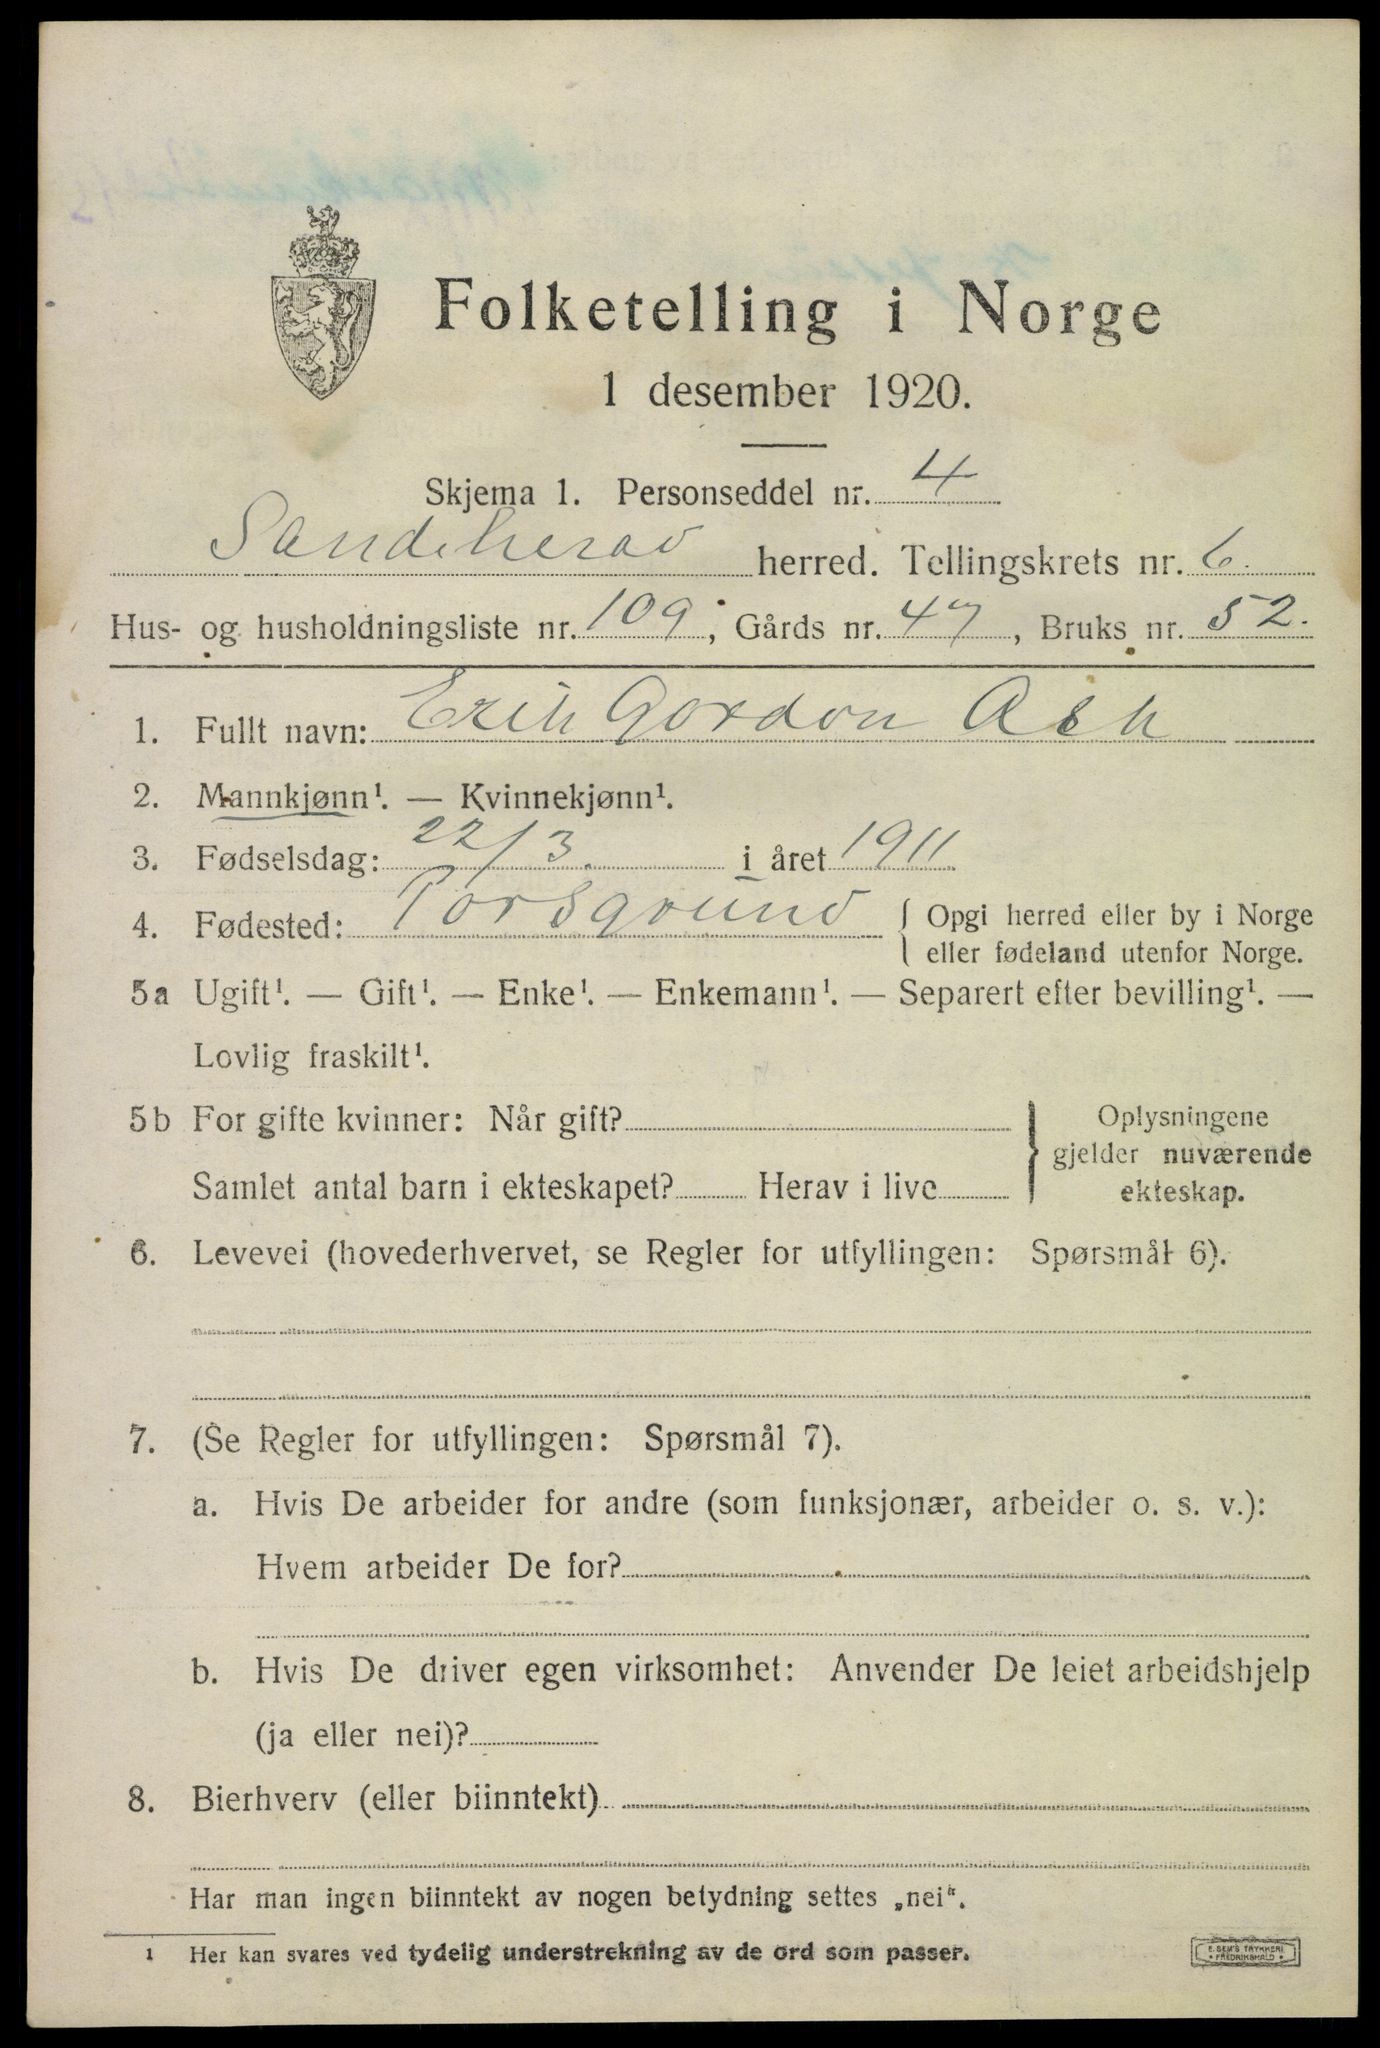 Folketelling i Norge
1 desember 1920.
Skjema 1. Personseddel nr. 4
Sandeherad herred. Tellingskrets nr. 6.
Hus- og husholdningsliste nr. 109, Gårds nr. 47, Bruks nr. 52.
1. Fullt navn: Erik Gordon Ash
2. Mannkjønn¹. — Kvinnekjønn¹.
3. Fødselsdag: 22/3. i året 1911
4. Fødested: Porsgrund { Opgi herred eller by i Norge
eller fødeland utenfor Norge.
5a Ugift¹. — Gift¹. — Enke¹. — Enkemann¹. — Separert efter bevilling¹. —
Lovlig fraskilt¹.
5b For gifte kvinner: Når gift? } Oplysningene
gjelder nuværende
Samlet antal barn i ekteskapet? Herav i live ekteskap.
6. Levevei (hovederhvervet, se Regler for utfyllingen: Spørsmål 6).
7. (Se Regler for utfyllingen: Spørsmål 7).
a. Hvis De arbeider for andre (som funksjonær, arbeider o. s. v.):
Hvem arbeider De for?
b. Hvis De driver egen virksomhet: Anvender De leiet arbeidshjelp
(ja eller nei)?
8. Bierhverv (eller biinntekt)
Har man ingen biinntekt av nogen betydning settes „nei“.
1 Her kan svares ved tydelig understrekning av de ord som passer.
E. SEM'S TRYKKERI
FREDRIKSHALD